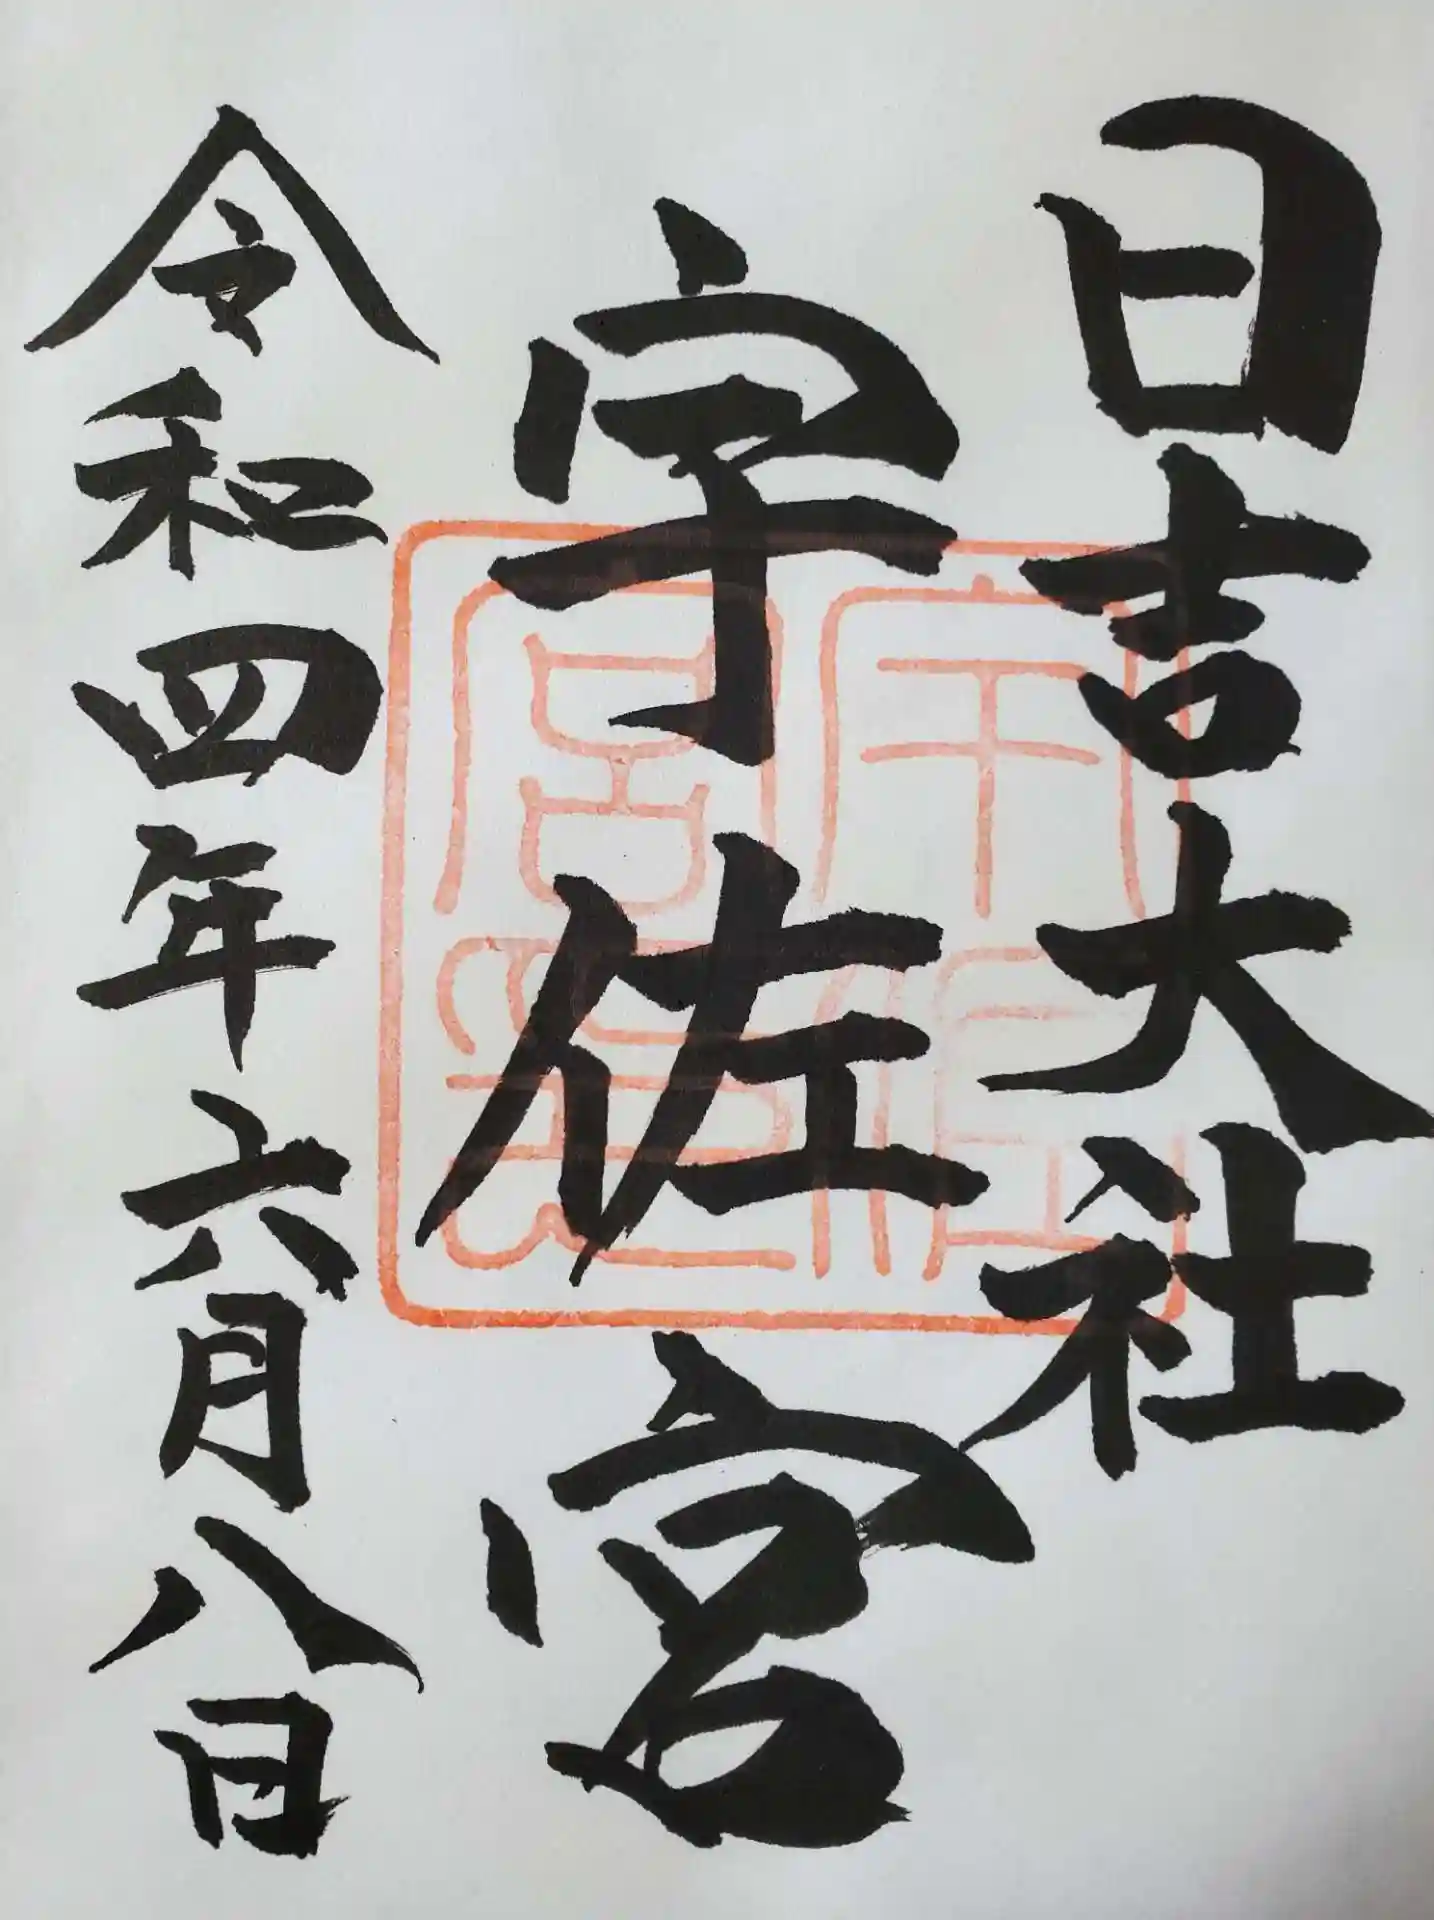 日吉大社
宇佐宮
宇佐宮璽
令和四年六月八日